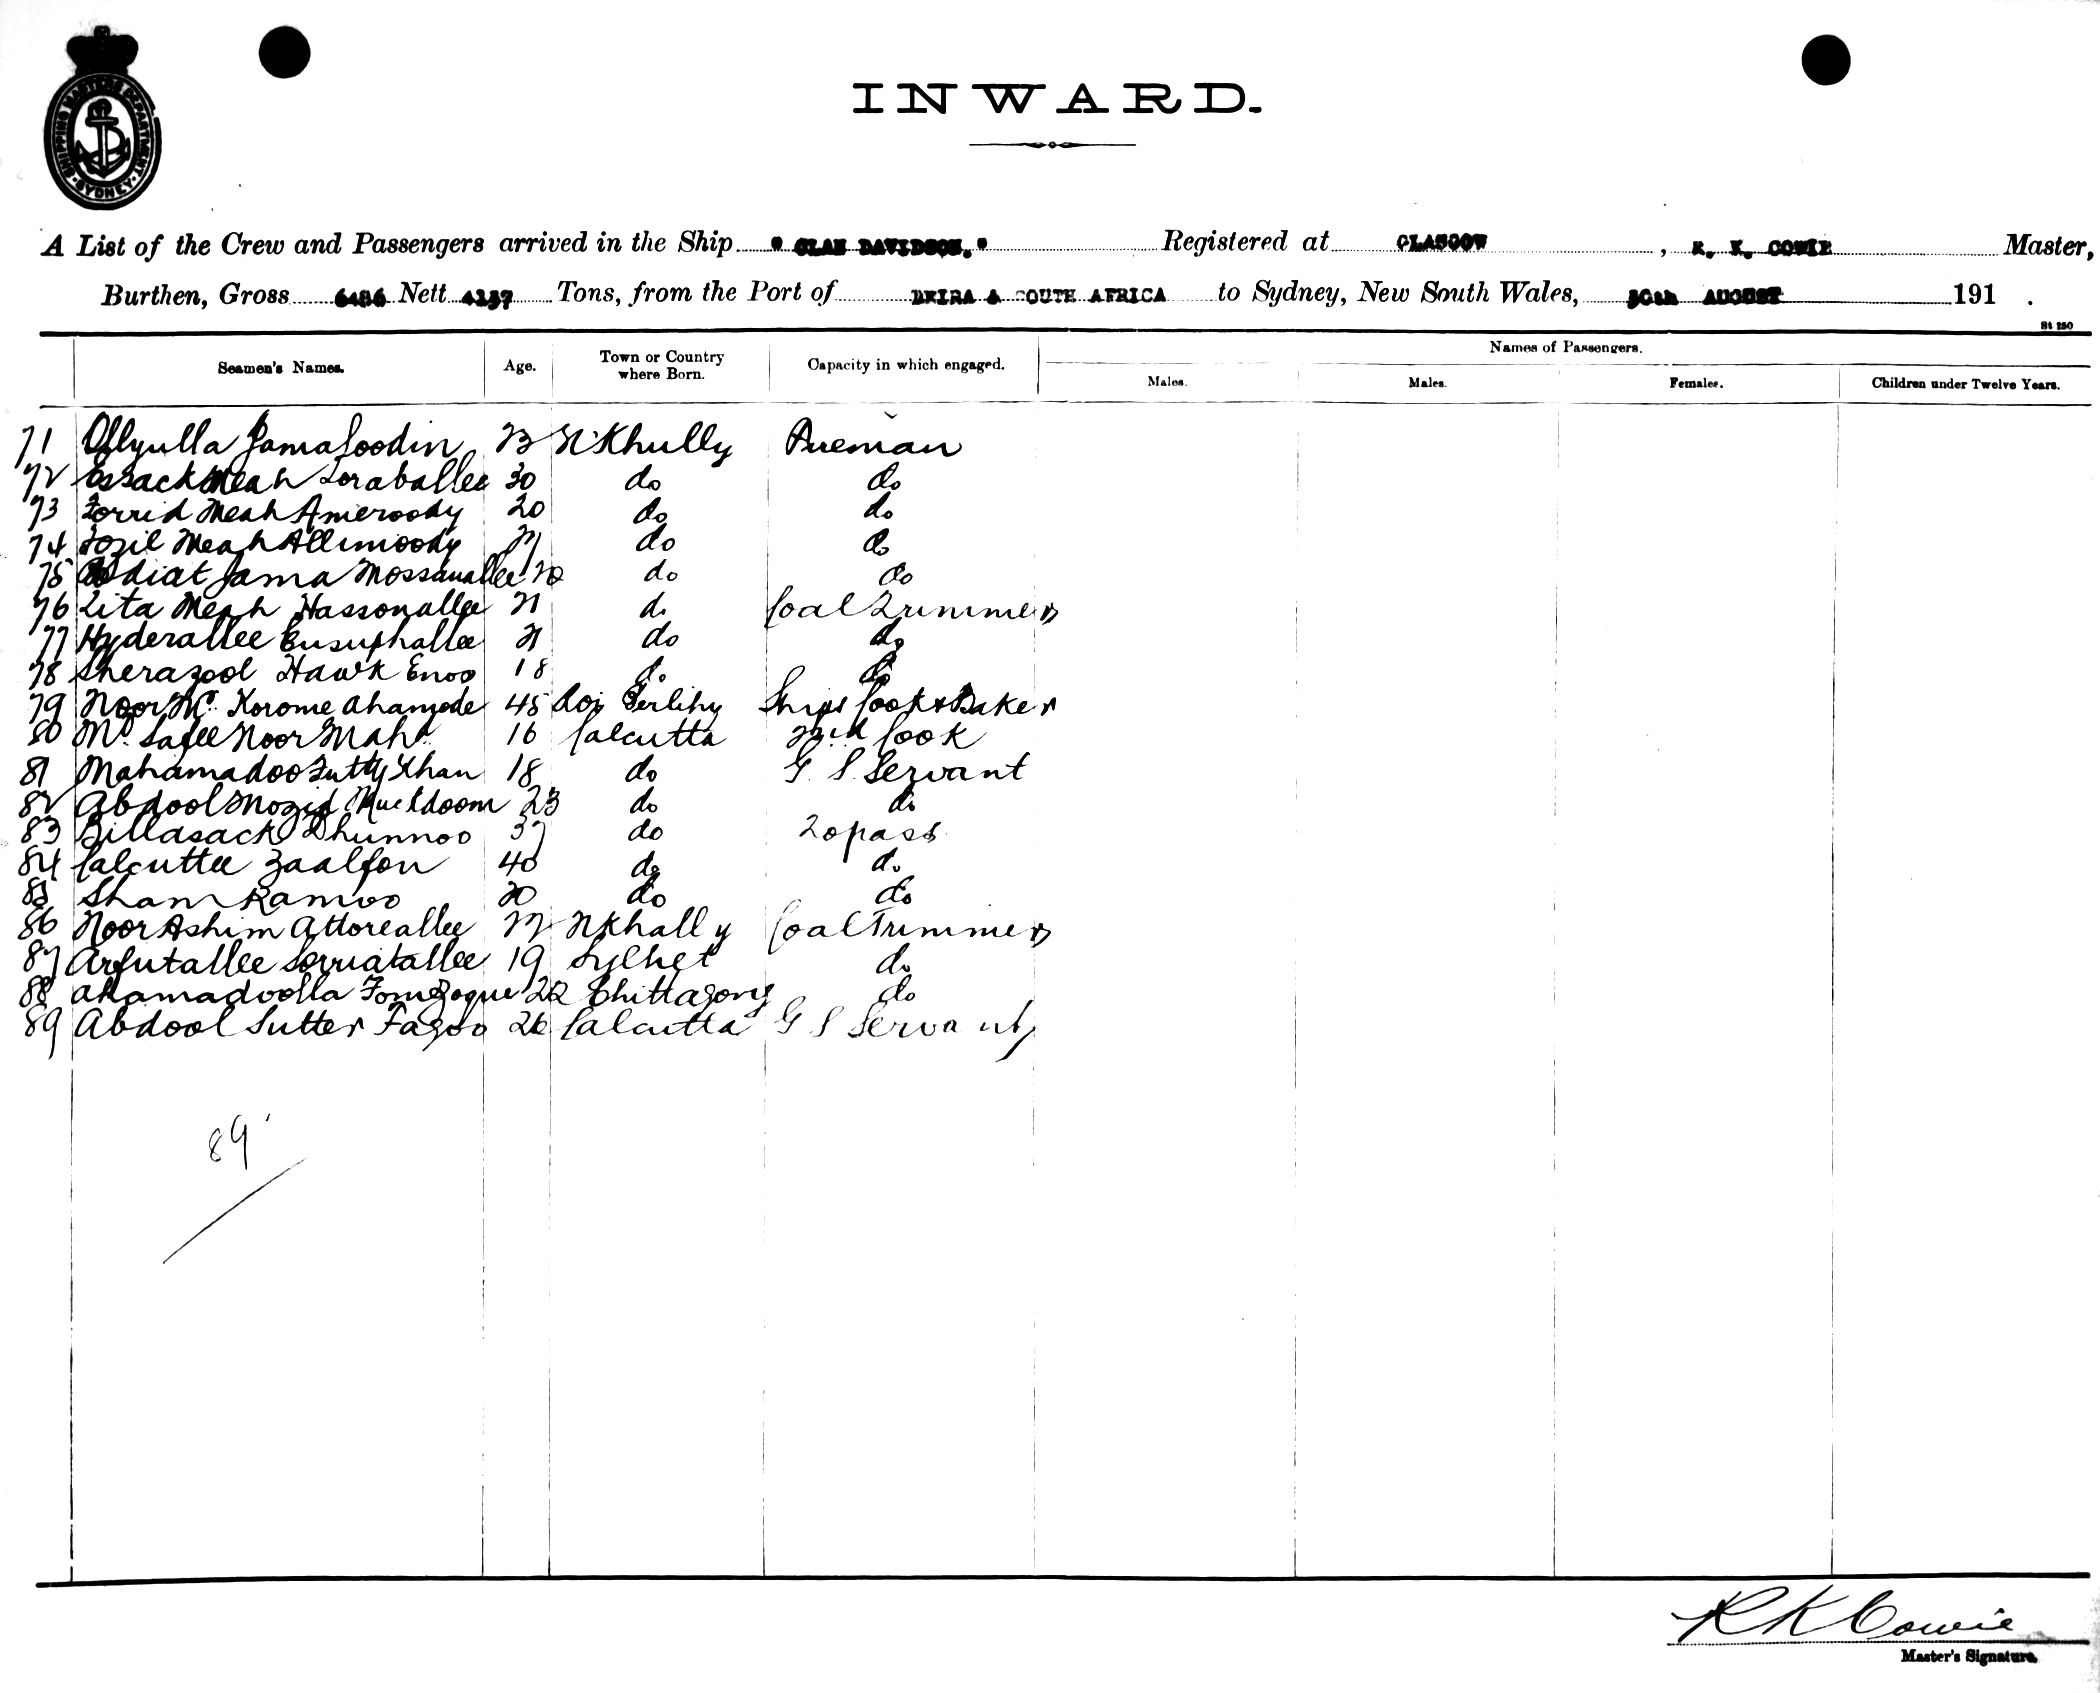 SHIPPING MASTERS DEPARTMENT. SYDNEY.
INWARD.
A List of the Crew and Passengers arrived in the Ship "CLAN DAVIDSON." Registered at GLASGOW, R. K. COWIE Master,
Burthen, Gross 6486 Nett 4137 Tons, from the Port of BEIRA & SOUTH AFRICA to Sydney, New South Wales, 30th AUGUST 191 .
St 250
Seamen's Names. Age. Town or Country where Born. Capacity in which engaged. Names of Passengers.
Males. Males. Females. Children under Twelve Years.
71 Ollyulla Jamaloodin 23 N'Khully Fireman
72 Essack Meah Soraballee 30 do do
73 Forrid Meah Ameroody 20 do do
74 Fozil Meah Allimoody do do
75 Jama Mossanallee 20 do do
76 Lita Meah Hassonallee 21 do Coal Trimmer
77 Hyderallee Eusuphallee 21 do do
78 Sherazool Hawk Enoo 18 do do
79 Noor Md. Korome Ahamode 45 Ships Cook & Baker
80 Md. Safee Noor Mahd. 16 Calcutta 2nd Cook
81 Mahamadoo Futty Khan 18 do G. S. Servant
82 Abdool Mozid Muckdoom 23 do do
83 Billasack Dhunnoo 37 do Topass
84 Calcuttee Zaalfon 40 do do
85 Sham Ramoo 20 do do
86 Noor Ashim Attoreallee 22 NKhally Coal Trimmer
87 Arfutallee Sorriatallee 19 Sylhet do
88 Ahamadoolla 22 Chittagong do
89 Abdool Sutter Fagoo 26 Calcutta G S Servant
89
R K Cowie
Master's Signature.